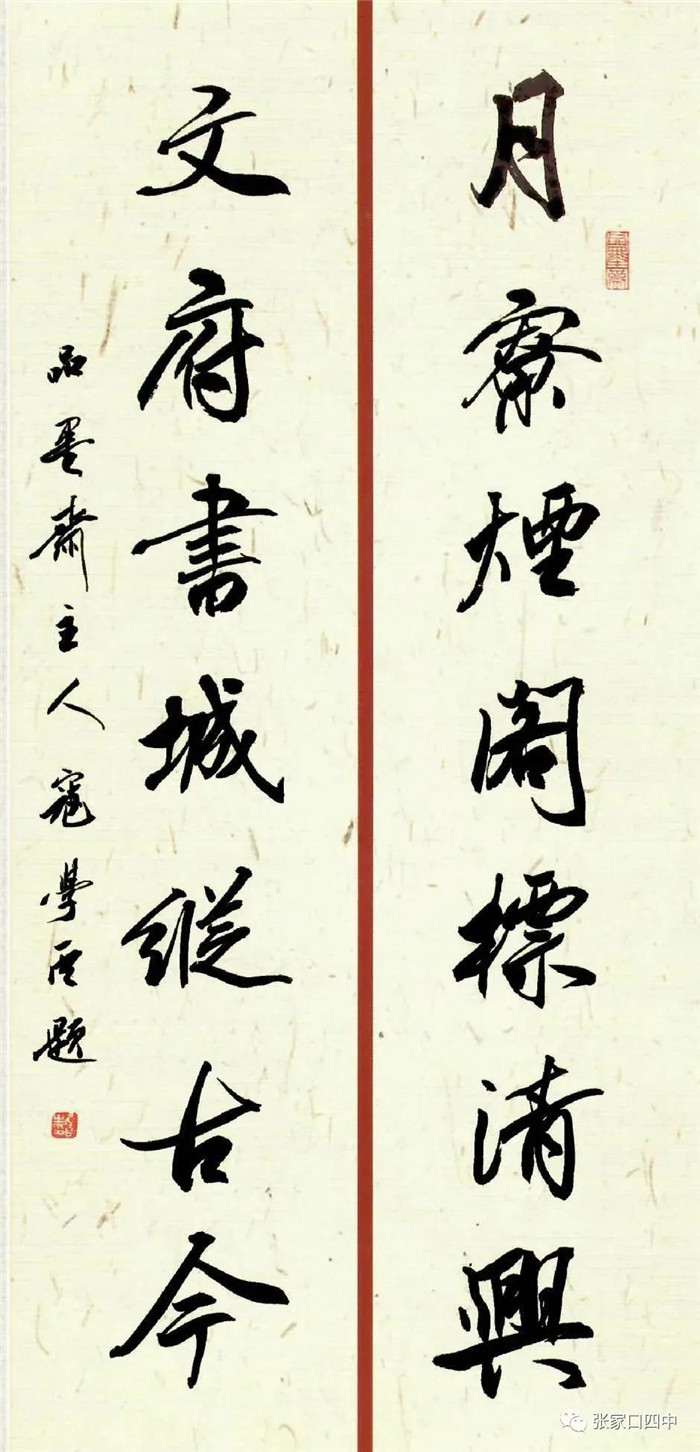 月寮煙閣標清興
文府書城縱古今
品墨齋主人寇學臣題
张家口四中